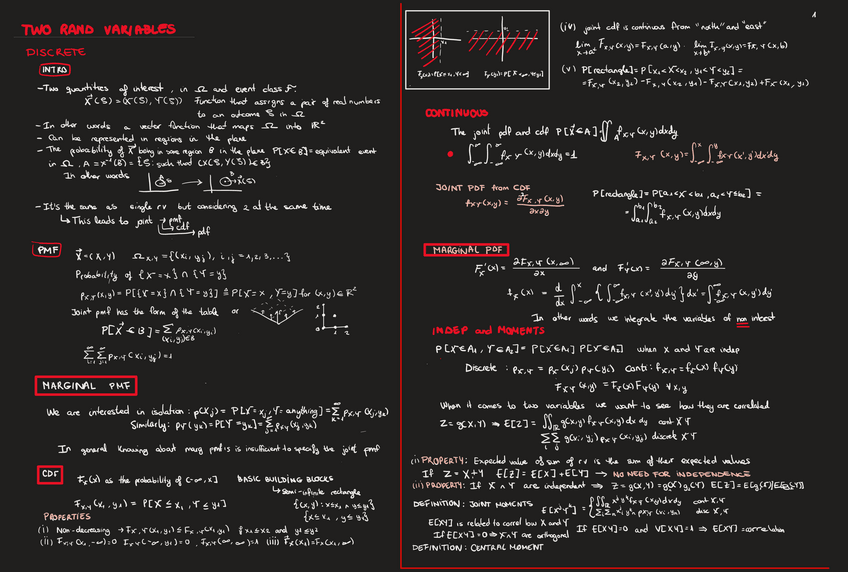 TWO RAND VARIABLES
DISCRETE
INTRO
- Two quantities of interest, in Ω and event class F.
X⃗(S) = (X(S), Y(S)) Function that assigns a pair of real numbers
to an outcome S in Ω
- In other words a vector function that maps Ω into ℝ²
- Can be represented in regions in the plane
- The probability of X⃗ being in some region B in the plane P[X∈B] = equivalent event
in Ω. A = X⁻¹(B) = {S: such that (X(S), Y(S)) ∈ B}
In other words
- It's the same as single rv but considering 2 at the same time
↳ This leads to joint → pmf
cdf
pdf
PMF
X⃗ = (X, Y) Ω X,Y = {(xi, yj), i, j = 1, 2, 3, ...}
Probability of {X = x} ∩ {Y = y}
pX,Y(x,y) = P[{X = x} ∩ {Y = y}] ≜ P[X = x, Y = y] for (x,y) ∈ ℝ²
Joint pmf has the form of the table or
P[X⃗ ∈ B] = Σ (xi,yj)∈B pX,Y(xi,yj)
Σ Σ pX,Y(xi, yj) = 1
MARGINAL PMF
We are interested in isolation: p(Xj) = P[X = xj, Y = anything] = Σ pX,Y(xj, yk)
Similarly: pY(yk) = P[Y = yk] = Σ pX,Y(xj, yk)
In general knowing about marg pmf is insufficient to specify the joint pmf
CDF
Fx(x) as the probability of (-∞, x] BASIC BUILDING BLOCKS
↳ semi-infinite rectangle
{(x,y): x≤x₁ ∧ y≤y₁}
FX,Y(x₁, y₁) = P[X ≤ x₁, Y ≤ y₁] {X≤x₁, Y≤y₁}
PROPERTIES
(i) Non-decreasing → FX,Y(x₁, y₁) ≤ FX,Y(x₂, y₂) if x₁≤x₂ and y₁≤y₂
(ii) FX,Y(x₁, -∞) = 0 FX,Y(-∞, y₁) = 0, FX,Y(∞, ∞) = 1 (iii) Fx(x₁) = FX,Y(x₁, ∞)
1
(iv) joint cdf is continuous from "north" and "east"
lim x→a⁺ FX,Y(x,y) = FX,Y(a,y). lim y→b⁺ FX,Y(x,y) = FX,Y(x,b)
(v) P[rectangle] = P[x₁<X≤x₂, y₁<Y≤y₂] =
= FX,Y(x₂, y₂) - FX,Y(x₂, y₁) - FX,Y(x₁, y₂) + FX,Y(x₁, y₁)
CONTINUOUS
The joint pdf and cdf P[X⃗∈A] = ∫∫A fX,Y(x,y)dxdy
∫∫ fX,Y(x,y)dxdy = 1 FX,Y(x,y) = ∫∫ fX,Y(x',y')dx'dy'
JOINT PDF from CDF P[rectangle] = P[a₁<X≤b₁, a₂<Y≤b₂] =
fX,Y(x,y) = ∂²FX,Y(x,y)/∂x∂y = ∫∫ fX,Y(x,y)dxdy
MARGINAL PDF
Fx'(x) = ∂FX,Y(x,∞)/∂x and FY'(x) = ∂FX,Y(∞,y)/∂y
fx(x) = d/dx ∫ {∫ fX,Y(x',y')dy'} dx' = ∫ fX,Y(x,y')dy'
In other words we integrate the variables of non interest
INDEP and MOMENTS
P[X∈A₁, Y∈A₂] = P[X∈A₁] P[Y∈A₂] when X and Y are indep
Discrete: pX,Y = px(xj) pY(yi) Conti: fX,Y = fx(x) fY(y)
FX,Y(x,y) = Fx(x)FY(y) ∀x,y
When it comes to two variables we want to see how they are correlated
Z = g(X,Y) ⇒ E[Z] = ∫∫ g(x,y) fX,Y(x,y) dx dy cont X Y
Σ Σ g(xi, yj) pX,Y(xi, yj) discrete X Y
(i) PROPERTY: Expected value of sum of rv is the sum of their expected values
If Z = X+Y E[Z] = E[X] + E[Y] → NO NEED FOR INDEPENDENCE
(ii) PROPERTY: If X ∧ Y are independent ⇒ Z = g(X,Y) = g₁(X) g₂(Y) E[Z] = E[g₁(X)]E[g₂(Y)]
DEFINITION: JOINT MOMENTS E[XʲYᵏ] = ∫∫ xʲyᵏ fX,Y(x,y)dxdy cont X,Y
Σ Σ xʲyᵏ pX,Y(xi, yn) disc X,Y
E[XY] is related to correl bw X and Y
If E[XY] = 0 ⇒ X ∧ Y are orthogonal If E[X] = 0 and V[X] = 1 ⇒ E[XY] = correlation
DEFINITION: CENTRAL MOMENT